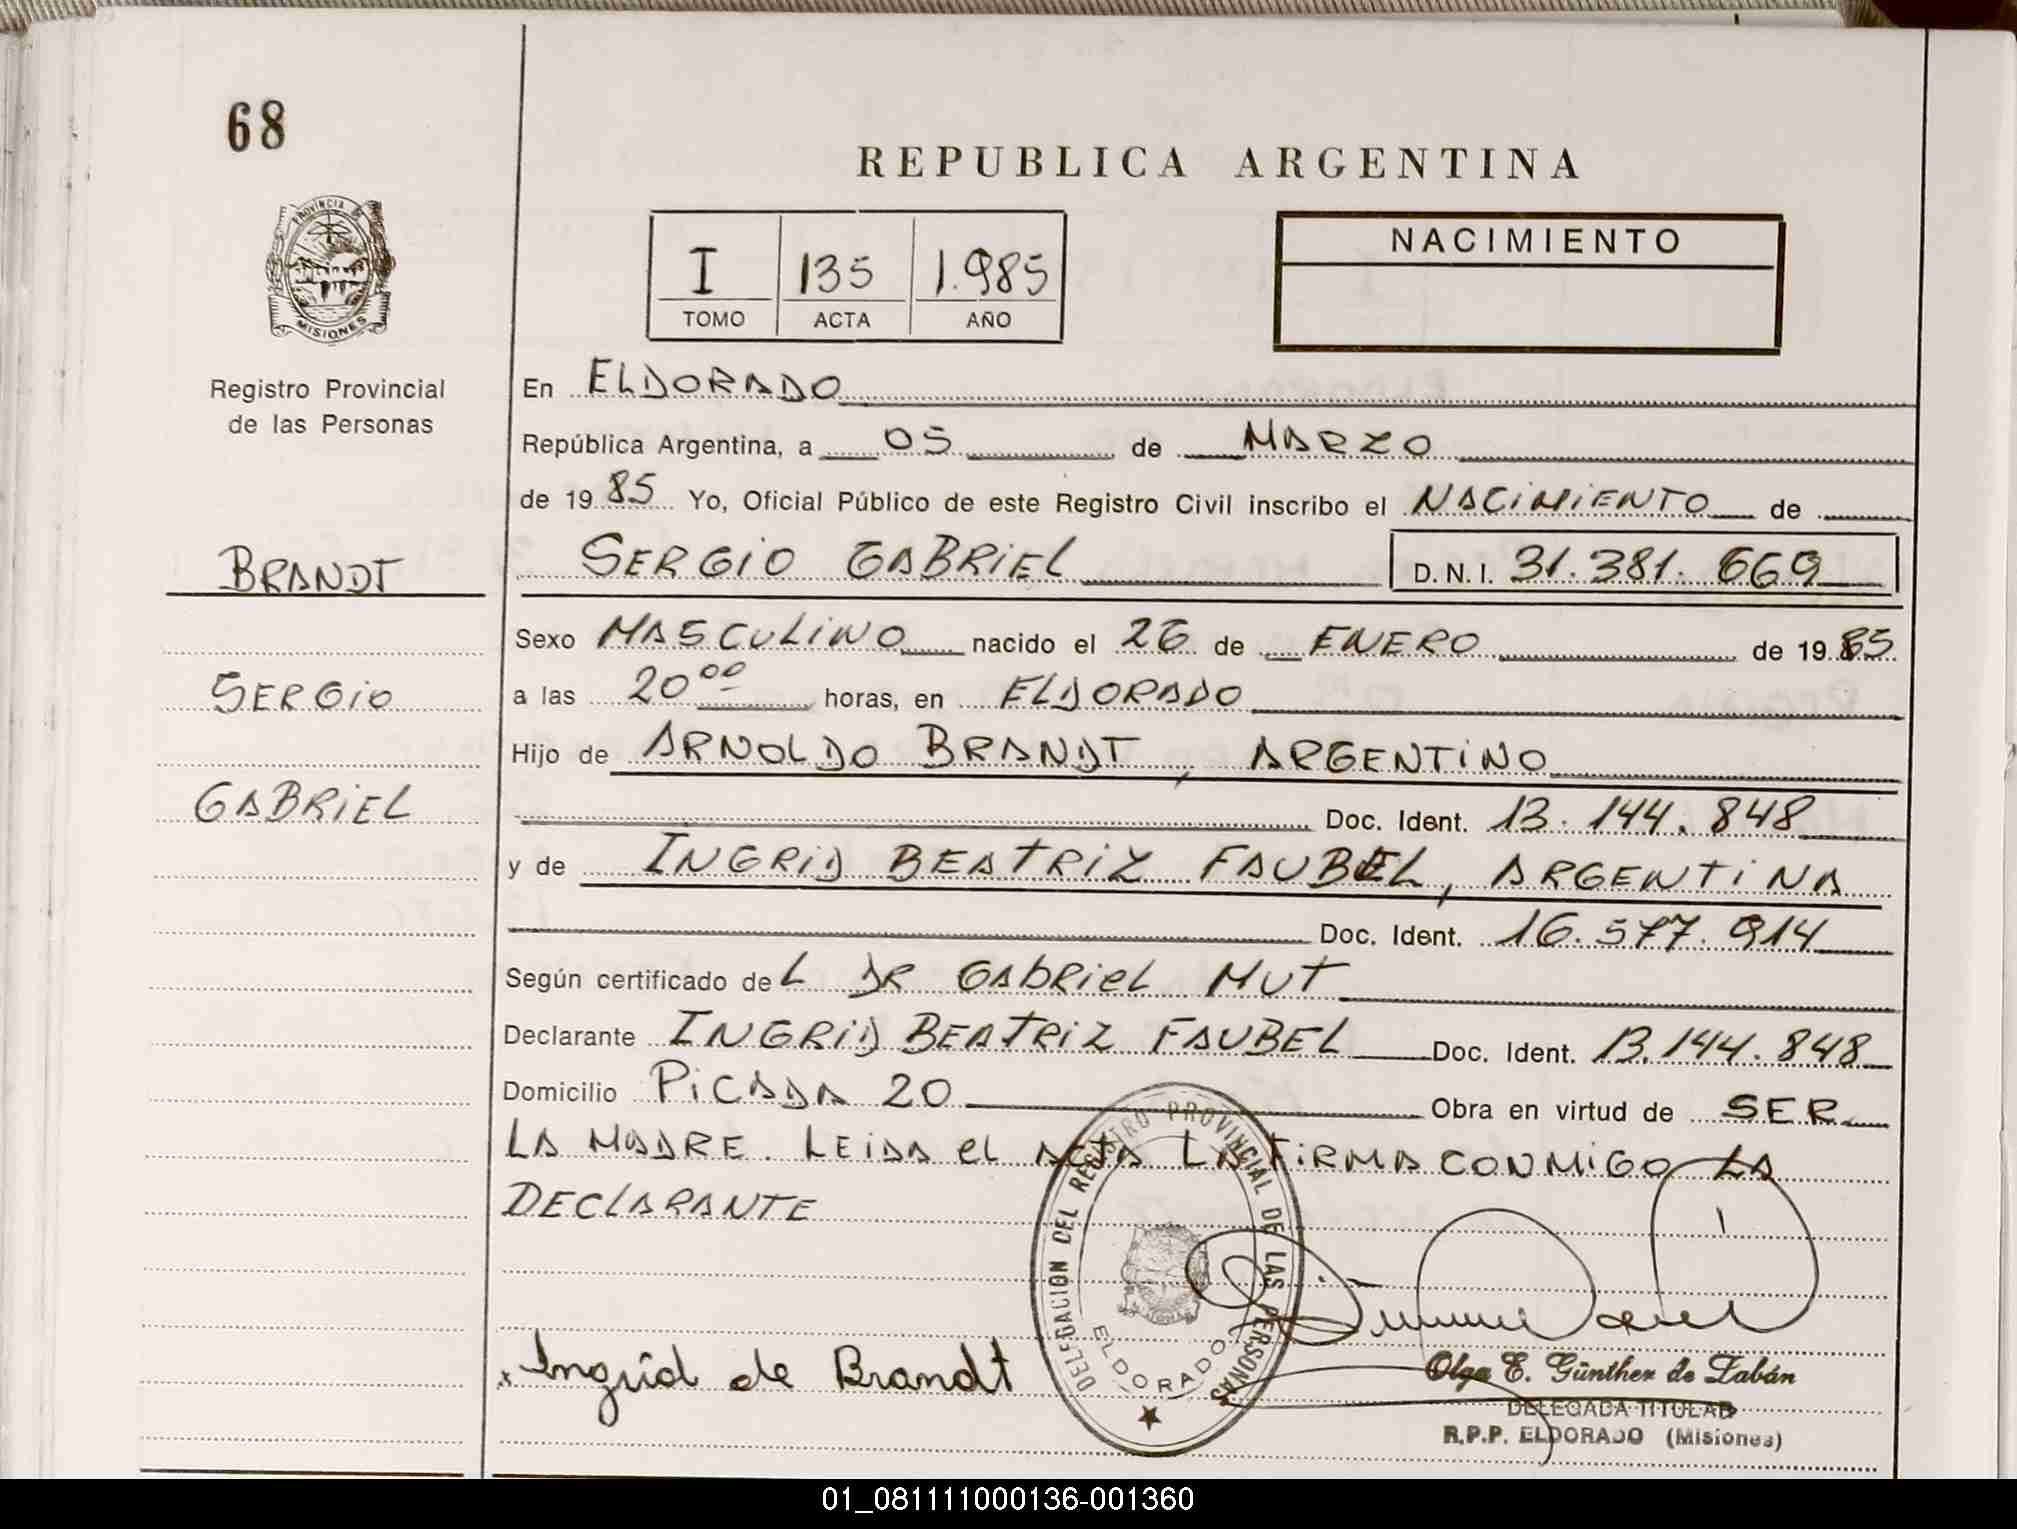 68
REPUBLICA ARGENTINA
PROVINCIA DE
MISIONES
I 135 1.985
TOMO ACTA AÑO
NACIMIENTO
Registro Provincial
de las Personas
En ELDORADO
República Argentina, a 05 de MARZO
de 1985 Yo, Oficial Público de este Registro Civil inscribo el NACIMIENTO de
BRANDT
SERGIO GABRIEL D.N.I. 31.381.669
Sexo MASCULINO nacido el 26 de ENERO de 1985
SERGIO
a las 20 00 horas, en ELDORADO
Hijo de ARNOLDO BRANDT, ARGENTINO
GABRIEL
Doc. Ident. 13.144.848
y de INGRID BEATRIZ FAUBEL, ARGENTINA
Doc. Ident. 16.577.914
Según certificado deL DR GABRIEL MUT
Declarante INGRID BEATRIZ FAUBEL Doc. Ident. 13.144.848
Domicilio PICADA 20 Obra en virtud de SER
LA MADRE. LEIDA EL ACTA LA FIRMA CONMIGO LA
DECLARANTE
DELEGACION DEL REGISTRO PROVINCIAL DE LAS PERSONAS
ELDORADO
x Ingrid de Brandt
Olga E. Günther de Zabán
DELEGADA TITULAR
R.P.P. ELDORADO (Misiones)
01_081111000136-001360